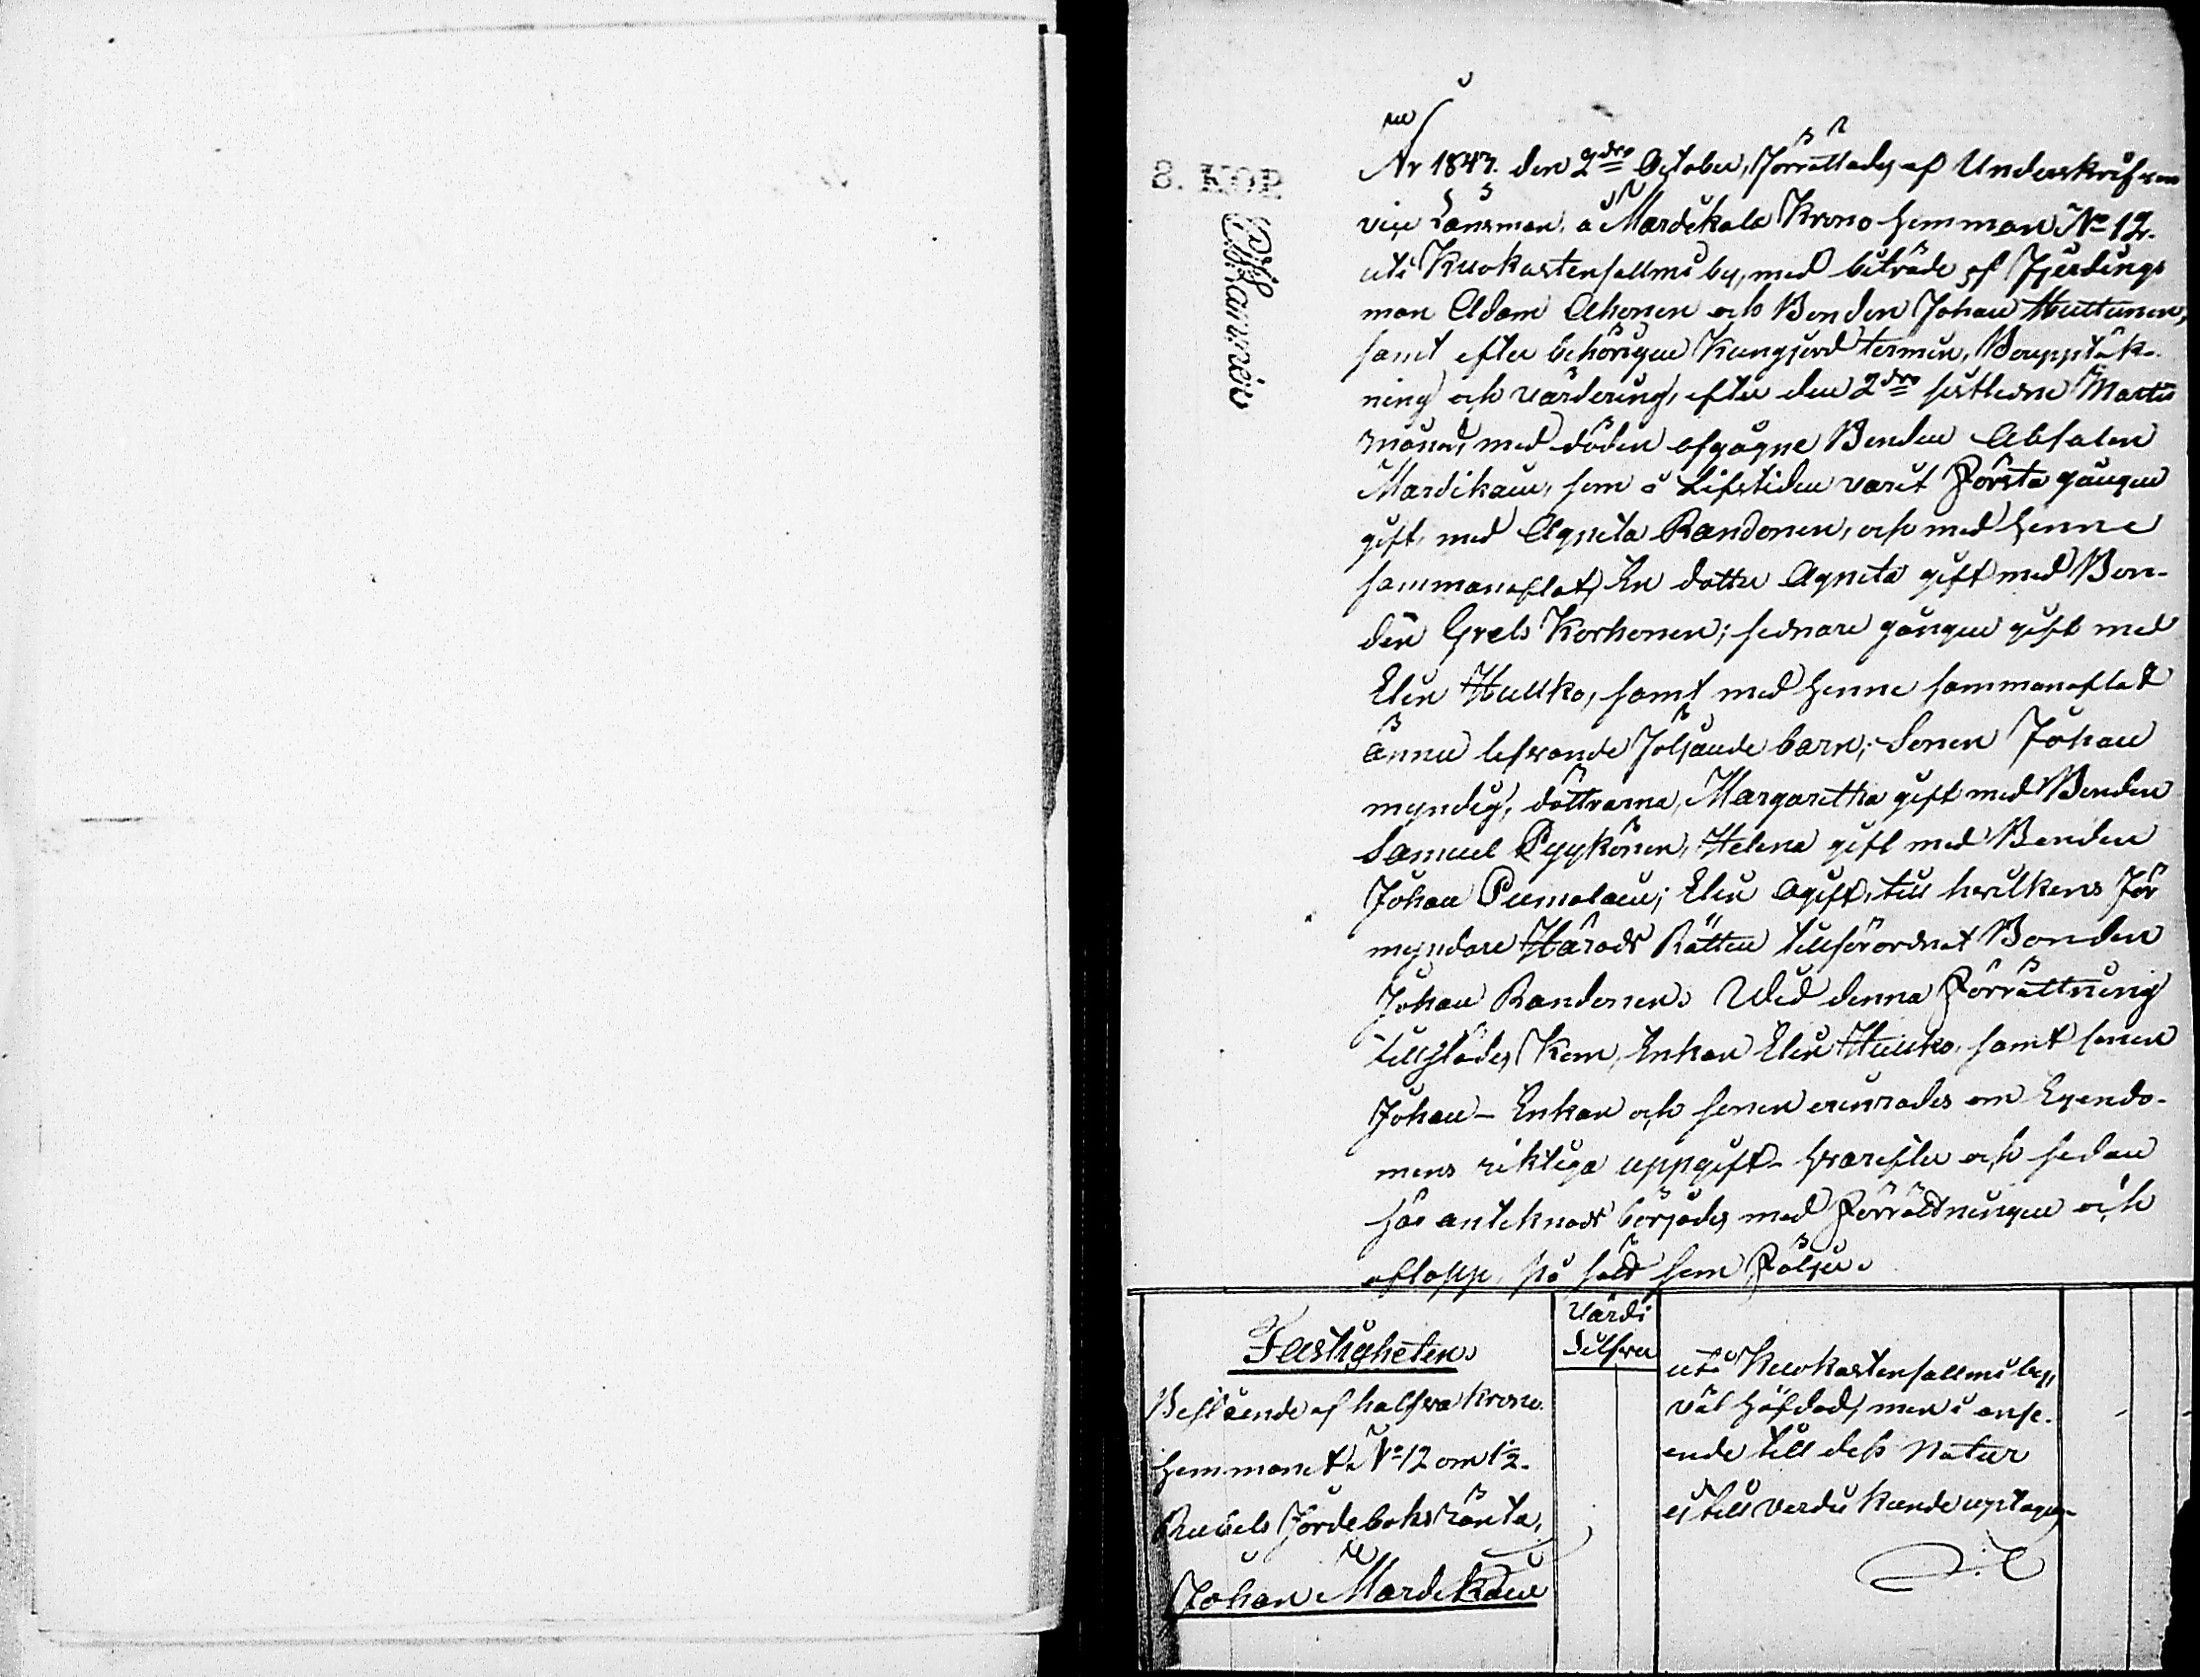 8. KOP
År 1847. den 2dra October, förrättades af Underskrifven
vice Länsman, å Mardikala Krono hemman No 12.
uti Kuokastensallmi by, med biträde af Fjerdings
man Adam Ahonen och Bonden Johan Huttunen,
samt efter behörigen Kungjord termin, Bouppteck-
ning och värdering, efter den 2dra sistledne Martii
månad, med döden afgågne Bonden Absalon
Mardikain, som i Lifstiden varit Första gången
gift, med Agneta Randonen, och med henne
sammanaflat, En dotter Agneta gift med Bon-
den Grels Korhonen; sednare gången gift med
Elin Hulkko, samt med henne sammanaflat
ännu lefvande följande barn; Sonen Johan
myndig, döttrarna, Margaretha gift med Bonden
Samuel Pyykönen, Helena gift med Bonden
Johan Pumalain; Elin Ogift, till hvilkens För
myndare Härads Rätten tillförordnat Bonden
Johan Randonen. Wid denna Förrättning
tillstädes Kom, Enkan Elin Hulkko, samt sonen
Johan – Enkan och sonen erinrades om Egendo-
mens riktiga uppgift – hvarefter och sedan
här antecknadt börjades med Förrättningen och
aflopp, på sätt som Följer.
Fastigheten.
Värdi
Silfver
Bestående af halfva Krono
hemmanet No 12 om 1/2.
Rubels Jordeboks ränta,
Johan Mardikain
uti Kuokastensallmi by,
väl häfdad, men i anse-
ende till dess Natur
ej till värdu kunde uptagas